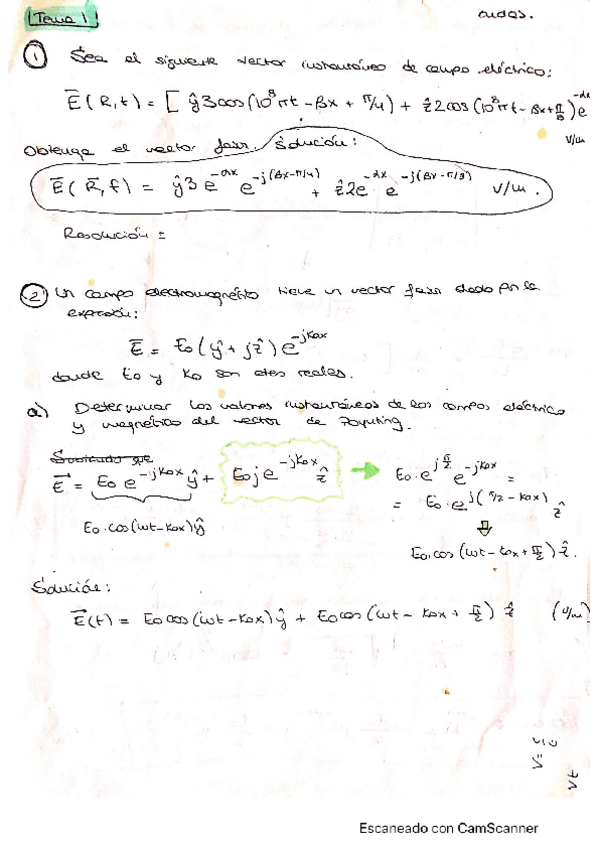 Tema 1
① Sea el siguiente vector instantáneo de campo eléctrico:
E(R,t) = [ŷ3cos(10⁸πt - βx + π/4) + ẑ2cos(10⁸πt - βx + π/3)e^-αx
V/m
Obtenga el vector fasor. Solución:
E(R,f) = ŷ3 e^-αx e^-j(βx-π/4) + ẑ2e^-αx e^-j(βx-π/3) V/m.
Resolución =
② Un campo electromagnético tiene un vector fasor dado por la
expresión:
E = E0(ŷ + jẑ)e^-jk0x
donde E0 y K0 son ctes reales.
a) Determinar los valores instantáneos de los campos eléctrico
y magnético del vector de Poynting.
E = E0 e^-jk0x ŷ + E0 j e^-jk0x ẑ → E0·e^jπ/2 e^-jk0x =
= E0·e^j(π/2 - k0x) ẑ
E0·cos(wt-k0x)ŷ
E0·cos(wt-k0x+π/2)ẑ.
Solución:
E(t) = E0cos(wt-k0x)ŷ + E0cos(wt-k0x + π/2) ẑ (V/m
Escaneado con CamScanner